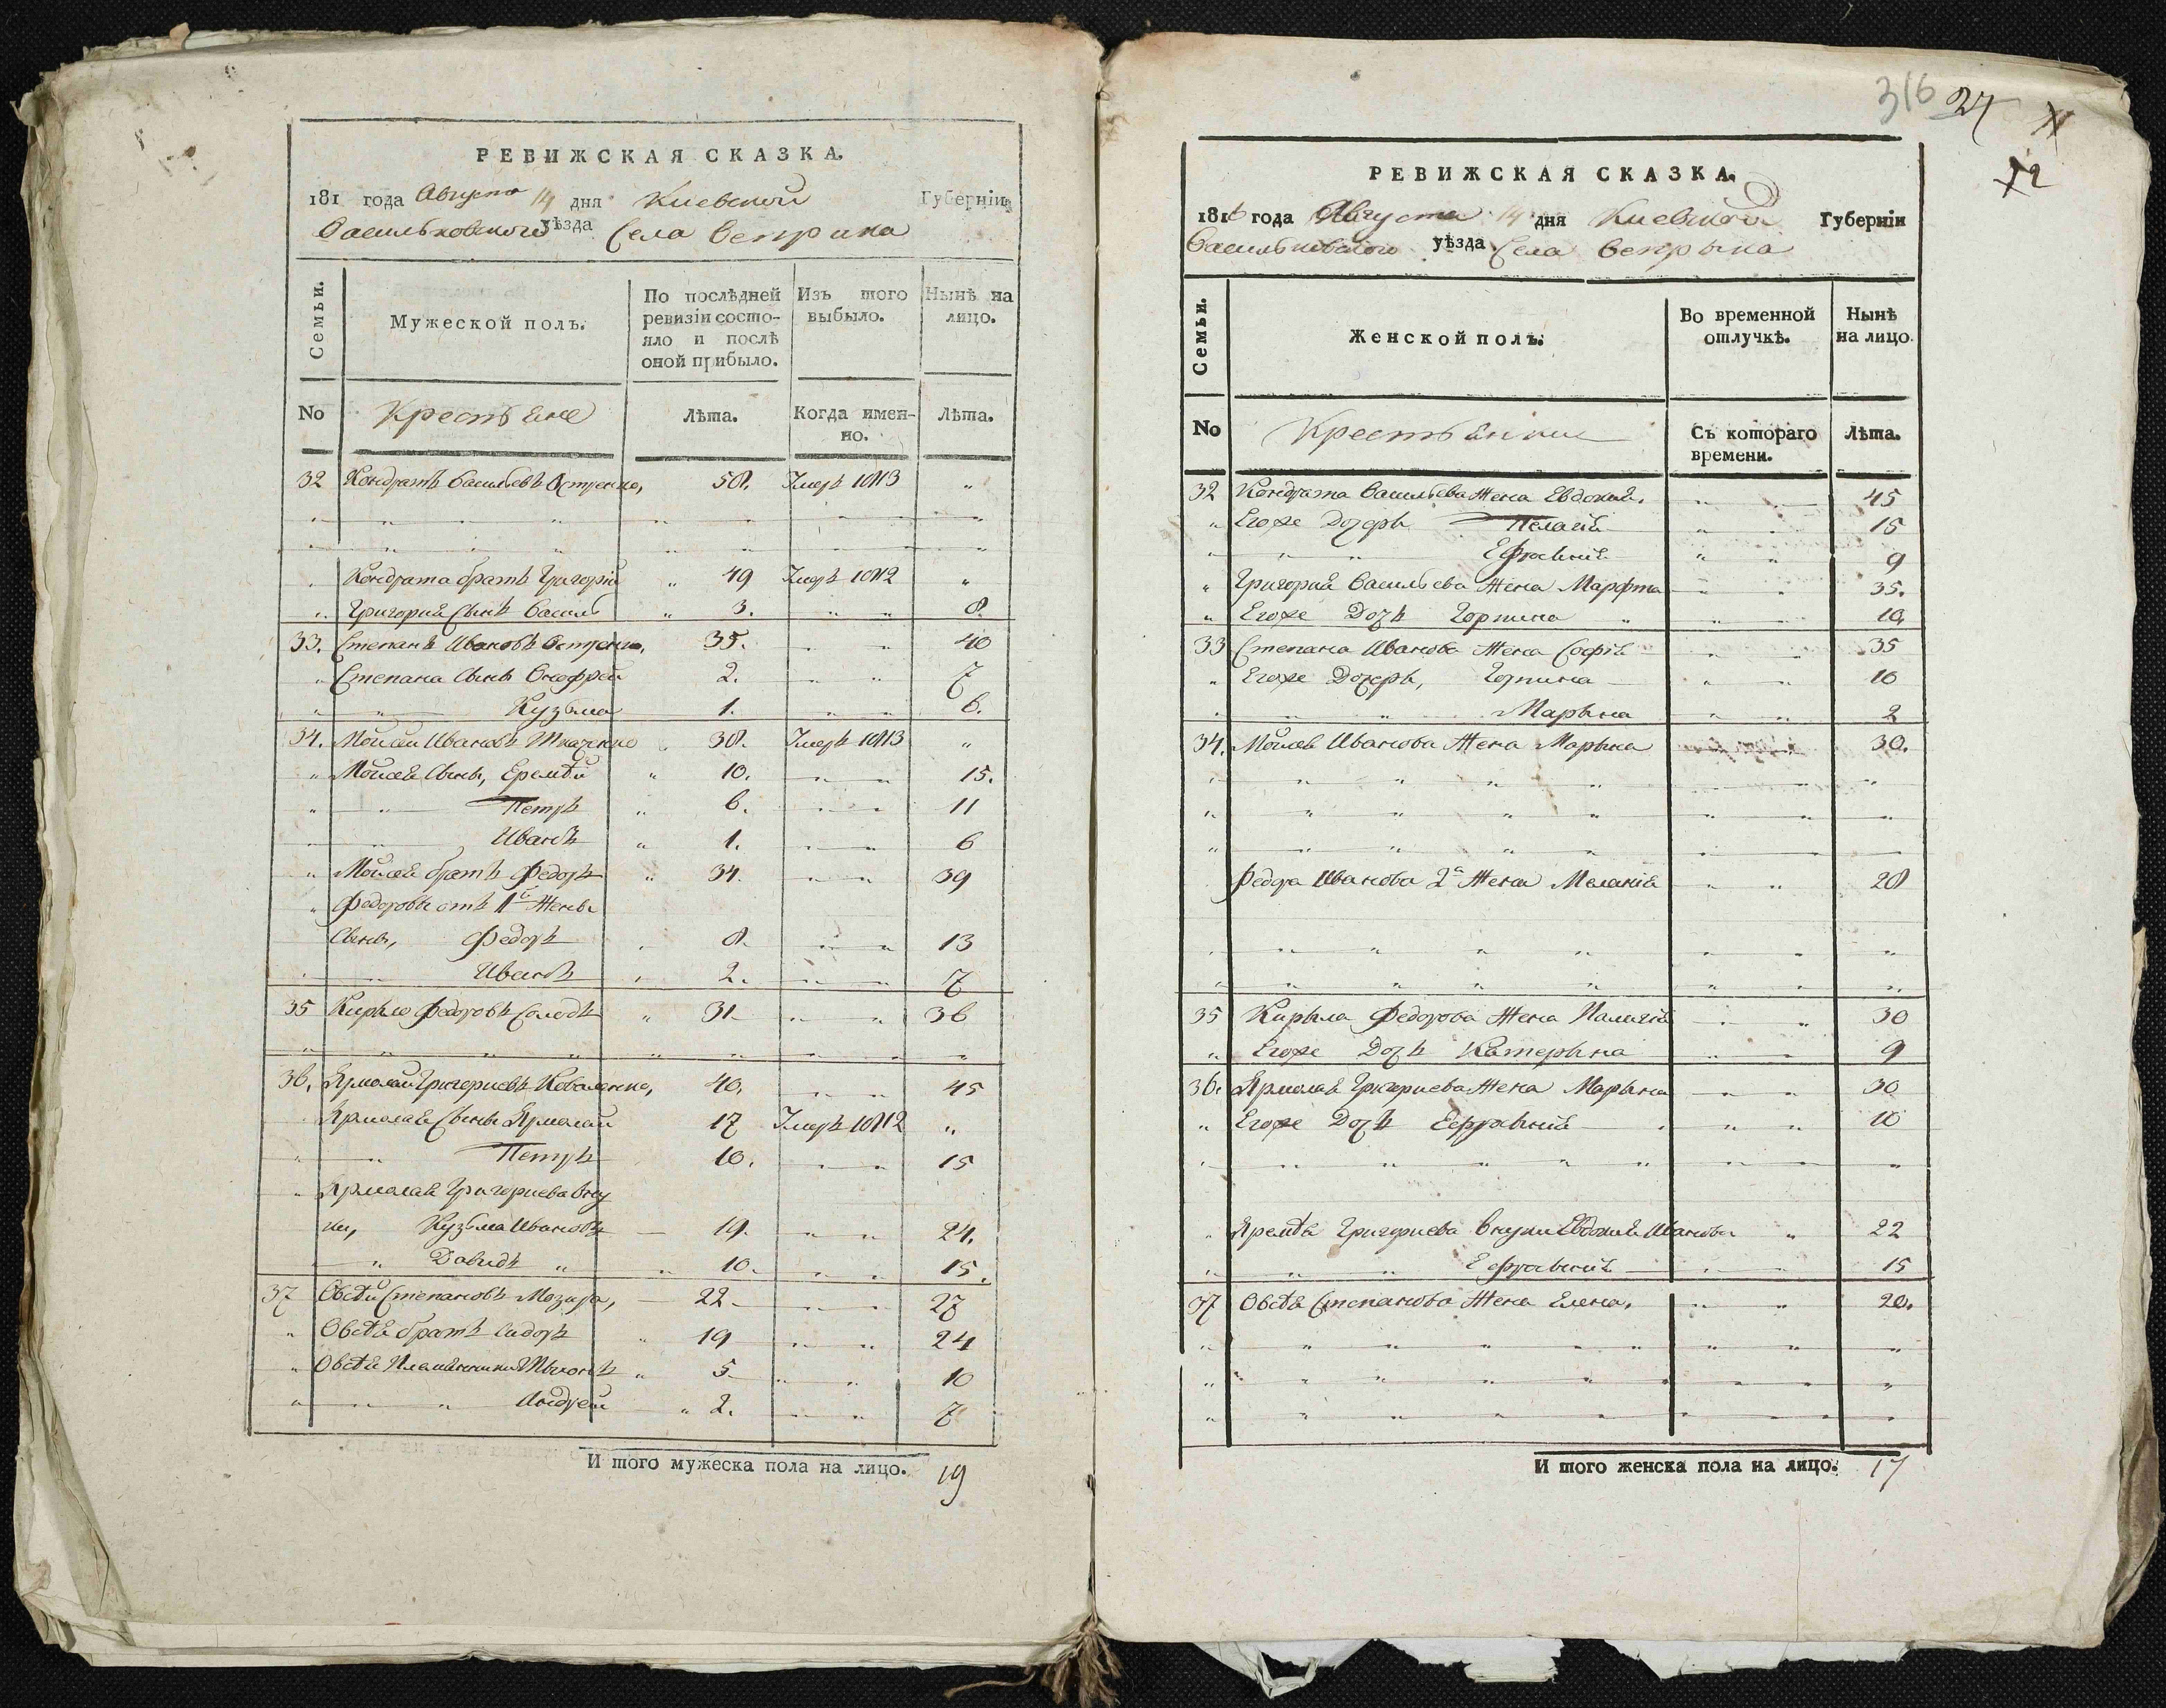 РЕВИЖСКАЯ СКАЗКА.
181 года Августа 14 дня Киевской Губерніи
Васильковского уѣзда Села Веприка
Семьи.
Мужеской полъ.
По послѣдней ревизіи состо-
яло и послѣ оной прибыло.
Изъ того выбыло.
Нынѣ на лицо.
No
Крестьяне
Лѣта.
Когда имен-
но.
Лѣта.
32 Кондратъ Васильевъ 58. Умеръ 1813 "
" Кондрата братъ Григорій " 49 Умеръ 1812 "
" Григорія Сынъ Василь " 3. " " 8.
33. Степанъ Ивановъ 35. " " 40
" Степана Сыны Онофрей 2. " " 7
" " Кузьма 1. " " 6.
34. Мойсей Ивановъ Ткаченко " 38. Умеръ 1813 "
" Мойсея Сыны, Еремѣй " 10. " " 15.
" " Петръ " 6. " " 11
" " Иванъ " 1. " " 6
" Мойсея братъ Федоръ " 34. " " 39
" Федоровы отъ 1й Жены
Сыны, Федоръ " 8. " " 13
" Иванъ " 2. " " 7
35 Кирыло Федоровъ Солодъ " 31 " " 36
36. Ярмолай Григориевъ Коваленко, 40. " " 45
Ярмолая Сыны Ярмолай 17 Умеръ 1812 "
" " Петръ 10. " " 15
" Ярмолая Григориева Вну
ки, Кузьма Ивановъ 19. " " 24.
" Давидъ " " 10. " " 15.
37 Овсѣй Степановъ Мозыра, 22 " " 27
" Овсѣя братъ Сидоръ " 19 " " 24
" Овсѣя Племянники " 5. " " 10
" " " Андрей " 2. " " 7
И того мужеска пола на лицо. 19
316 24
12
РЕВИЖСКАЯ СКАЗКА.
1816 года Августа 14 дня Киевской Губерніи
Васильковского уѣзда Села Веприка
Семьи.
Женской полъ.
Во временной отлучкѣ.
Нынѣ на лицо.
No
Крестьянки
Съ котораго времени.
Лѣта.
32 Кондрата Васильева Жена Евдокия. " " 45
" Егоже Дочеры Пелагія " " 15
" " " Ефросинія " " 9
" Григорія Васильева Жена Марфта " " 35.
" Егоже Дочъ Горпина " " " 10
33 Степана Иванова Жена Софія " " 35
" Егоже Дочеры, Горпина " " 10
" " " Марына " " 2
34. Мойсея Иванова Жена Марына " 30.
Федора Иванова 2а Жена Меланія " " 28
35 Кирыла Федорова Жена Палагія " " 30
" Егоже Дочъ Катерына " " 9
36. Ярмолая Григориева Жена Марына " " 30
" Егоже Дочъ " " 10
" Григориева Внуки Евдокия Иванова " 22
" " " " " 15
37 Овсѣя Степанова Жена Елена. " " 20.
И того женска пола на лицо. 17